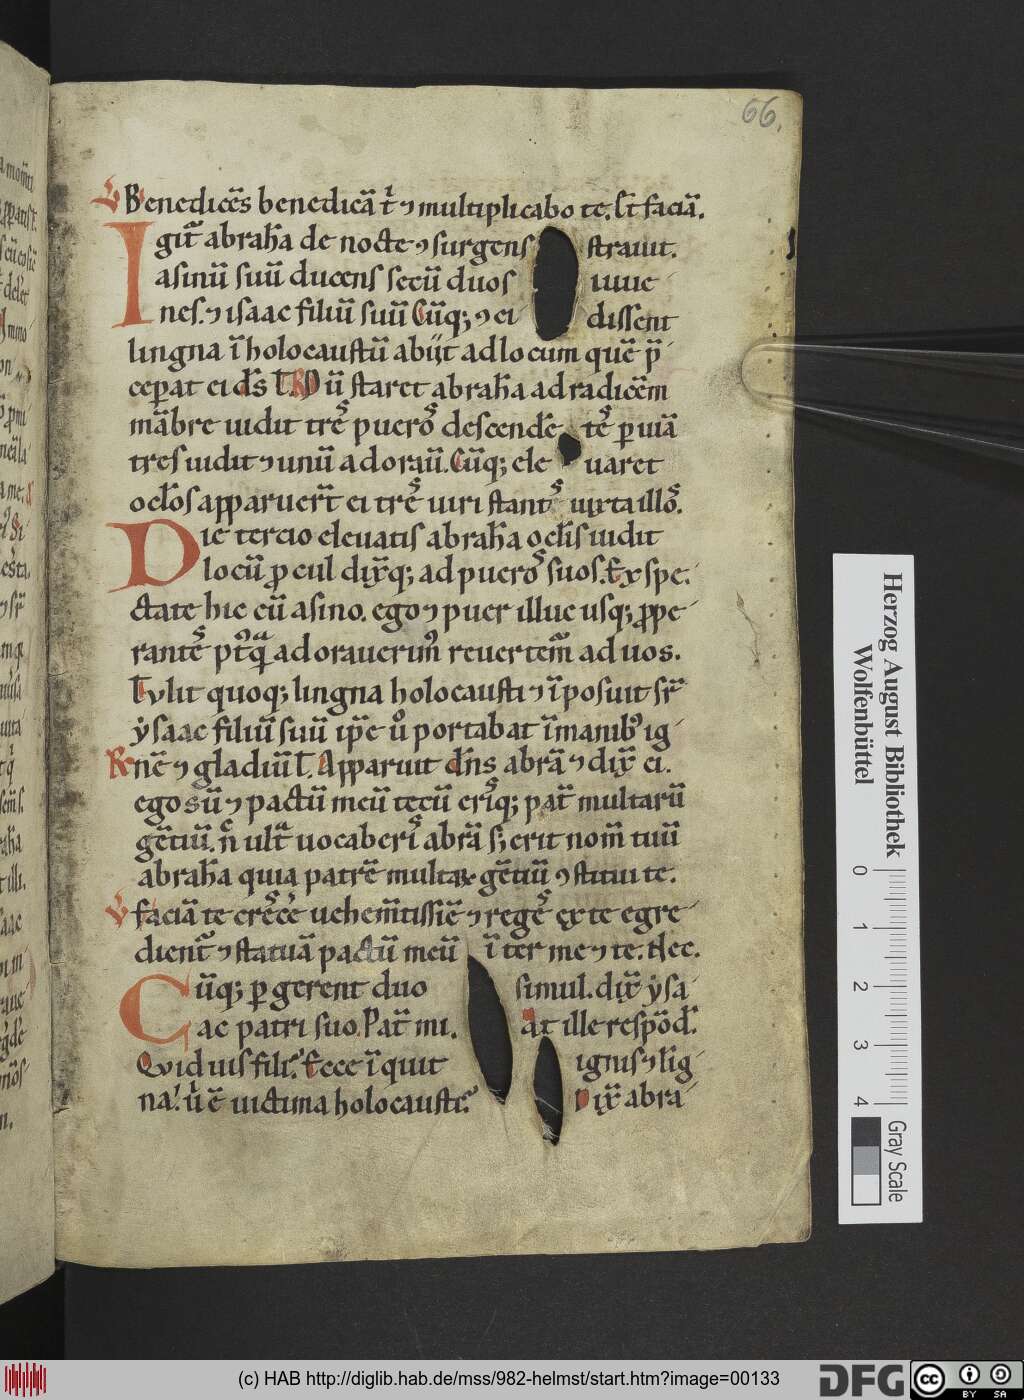 66.
V Benedicēs benedicā t̄ ⁊ multiplicabo te. S̄t faciā.
Igit̄ abrah̄a de nocte ⁊ surgens strauit.
asinū suū ducens secū duos iuue-
nes. ⁊ isaac filiū suū Cūq; ⁊ ci dissent
lingna ī holocaustū abiit ad locum quē p̄-
cep̱at ei d̄s T R D ū staret abrah̄a ad radicēm
mābre uidit trēs puerōs descendē tēs p̱ uiā
tres uidit ⁊ unū adorau̅. Cūq; ele uaret
oc̄los apparuer̄t ei trēs uiri stantēs iuxta illōs.
Die tercio eleuatis abrah̄a oc̄lis uidit
locū procul dix̄q; ad puerōs suos. Exspe-
ctate hic cū asino. ego ⁊ puer illuc usq; prope-
rantēs pt̄q̄ adorauerim̄ reuertem̄ ad uos.
Tulit quoq; lingna holocausti ⁊ īposuit sr̄
ẏsaac filiū suū ip̄e uͦ portabat ī manib̄ ig-
Re nē ⁊ gladiū T. Apparuit dn̄s abrā ⁊ dix̄ ei.
ego sū ⁊ pactū meū tecū eris̄q; pat̄ multarū
gētiū. n̄ ult̄ uocaberis̄ abrā s; erit nom̄ tuū
abrah̄a quia patrē multaꝝ gētiū ꝯstitui te.
V faciā te crēscē uehem̄tissiē ⁊ regēs ex te egre-
dient̄ ⁊ statuā pactū meū īter me ⁊ te. Hec.
Cūq; p̱gerent duo simul. dix̄ ẏsa-
ac patri suo. Pat̄ mi. at ille respōd̄.
Quid uis fili? Ecce īquit ignis ⁊ līg-
na! ūē uictima holocausti? Dix̄ abra-
Herzog August Bibliothek
Wolfenbüttel
0 1 2 3 4
Gray Scale
(c) HAB http://diglib.hab.de/mss/982-helmst/start.htm?image=00133
DFG
cc BY SA